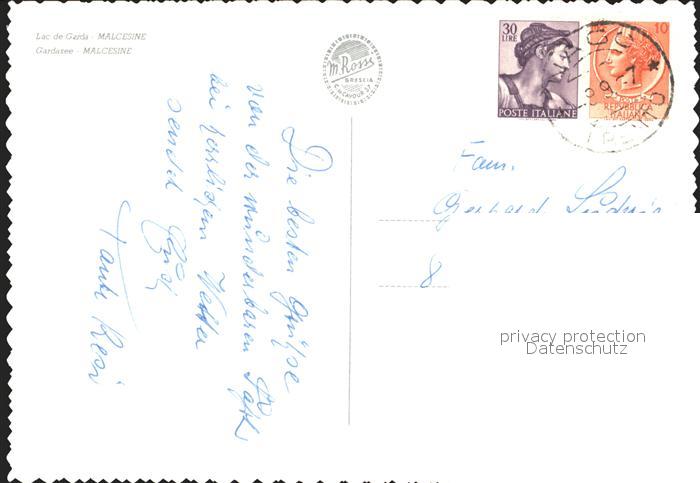 Lac de Garda - MALCESINE
Gardazee - MALCESINE
m. Rossi
BRESCIA
30
LIRE
POSTE ITALIANE
10
REPVBBLICA
ITALIANA
Die besten Grüße
von der wunderbaren
bei herrlichem Wetter
sendet Euch
Tante Resi
Fam.
Gerhard
8
privacy protection
Datenschutz